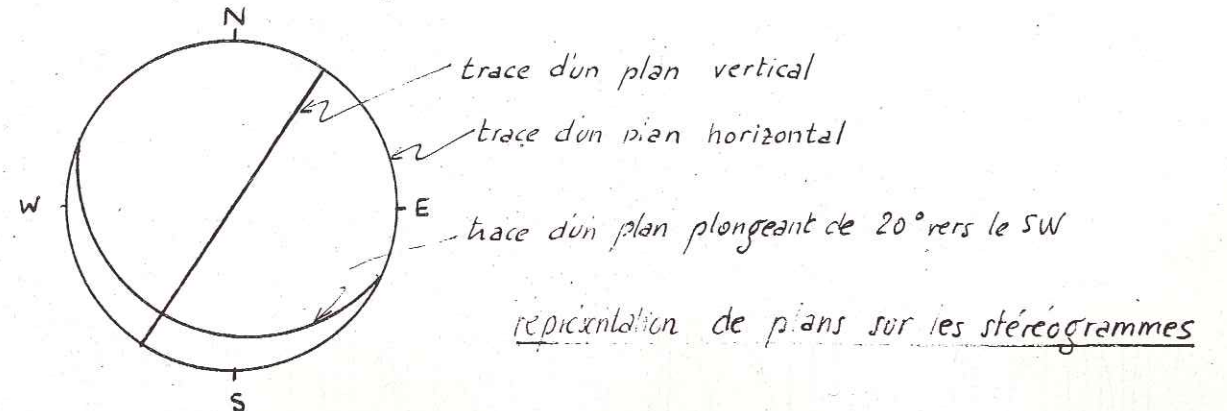 N
trace d'un plan vertical
trace d'un plan horizontal
W
E
trace d'un plan plongeant de 20° vers le SW
représentation de plans sur les stéréogrammes
S